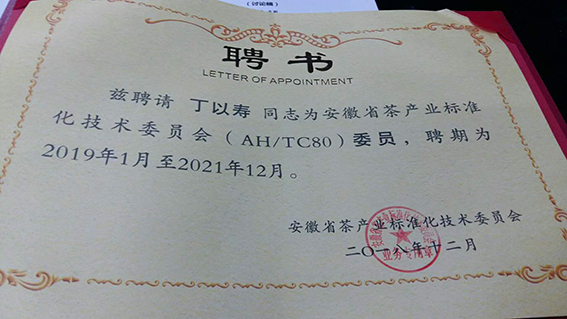 （讨论稿）
聘书
LETTER OF APPOINTMENT
兹聘请 丁以寿 同志为安徽省茶产业标准
化技术委员会（AH/TC80）委员，聘期为
2019年1月至2021年12月。
安徽省茶产业标准化技术委员会
业务专用章
二〇一八年十二月